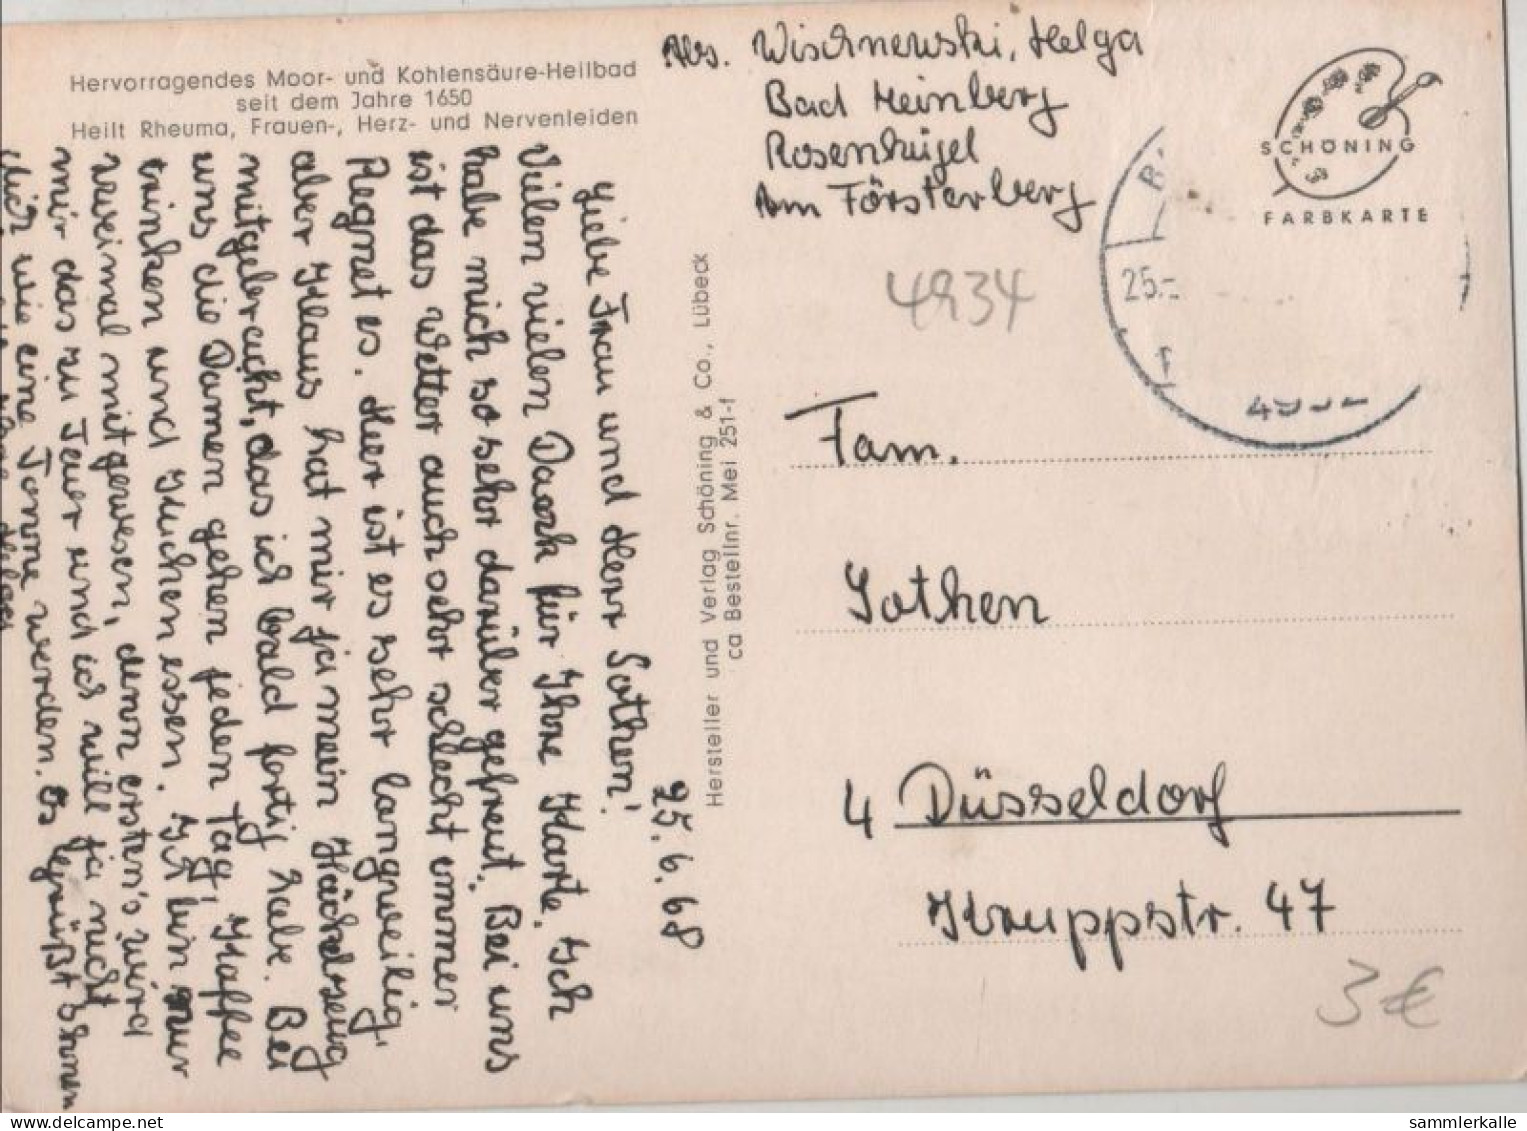 Hervorragendes Moor- und Kohlensäure-Heilbad
seit dem Jahre 1650
Heilt Rheuma, Frauen-, Herz- und Nervenleiden
25.6.68
Liebe Frau und Herr Sothen!
Vielen vielen Dank für Ihre Karte. Ich
habe mich so sehr darüber gefreut. Bei uns
ist das Wetter auch sehr schlecht immer
Regnet es. Hier ist es sehr langweilig,
aber Klaus hat mir ja mein Häckelzeug
mitgebracht, das ich bald fertig habe. Bei
uns die Damen gehen jeden Tag, Kaffee
trinken und Kuchen essen. Ich bin nur
zweimal mitgewesen, denn ersten's wird
mir das zu Teuer und ich will ja nicht
dick wie eine Tonne werden. Es grüßt
Hersteller und Verlag Schöning & Co., Lübeck
ca Bestellnr. Mei 251-f
Abs. Wischnewski, Helga
Bad Meinberg
Rosenhügel
Am Försterberg
4934
SCHÖNING
FARBKARTE
25.-
Fam.
Sothen
4 Düsseldorf
Kruppstr. 47
3 €
sammlerkalle